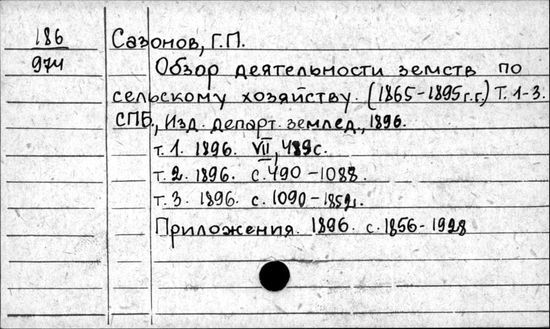 186
974
Сазонов, Г.П.
Обзор деятельности земств по
сельскому хозяйству. (1865-1895 г.г.) Т. 1-3.
СПБ., Изд. департ. землед., 1896.
т. 1. 1896. VII, 489 с.
т. 2. 1896. с. 490-1088.
т. 3. 1896. с. 1090-1852.
Приложения. 1896. с. 1856-1928